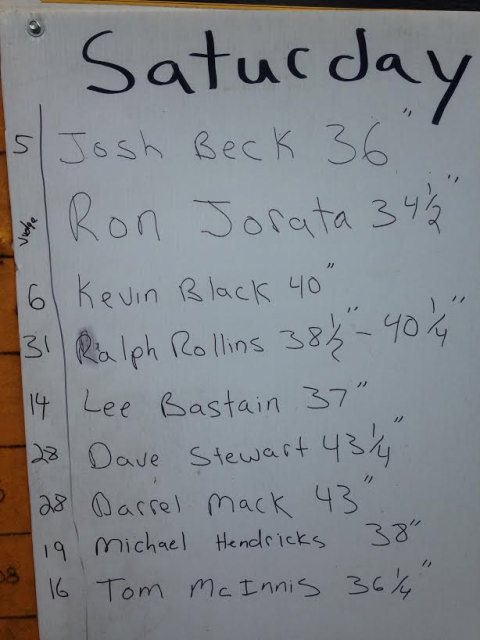 Saturday
5 Josh Beck 36"
Ron Jorata 34 1/2"
6 Kevin Black 40"
31 Ralph Rollins 38 1/2" - 40 1/4"
14 Lee Bastain 37"
28 Dave Stewart 43 1/4"
28 Darrel Mack 43"
19 Michael Hendricks 38"
16 Tom McInnis 36 1/4"